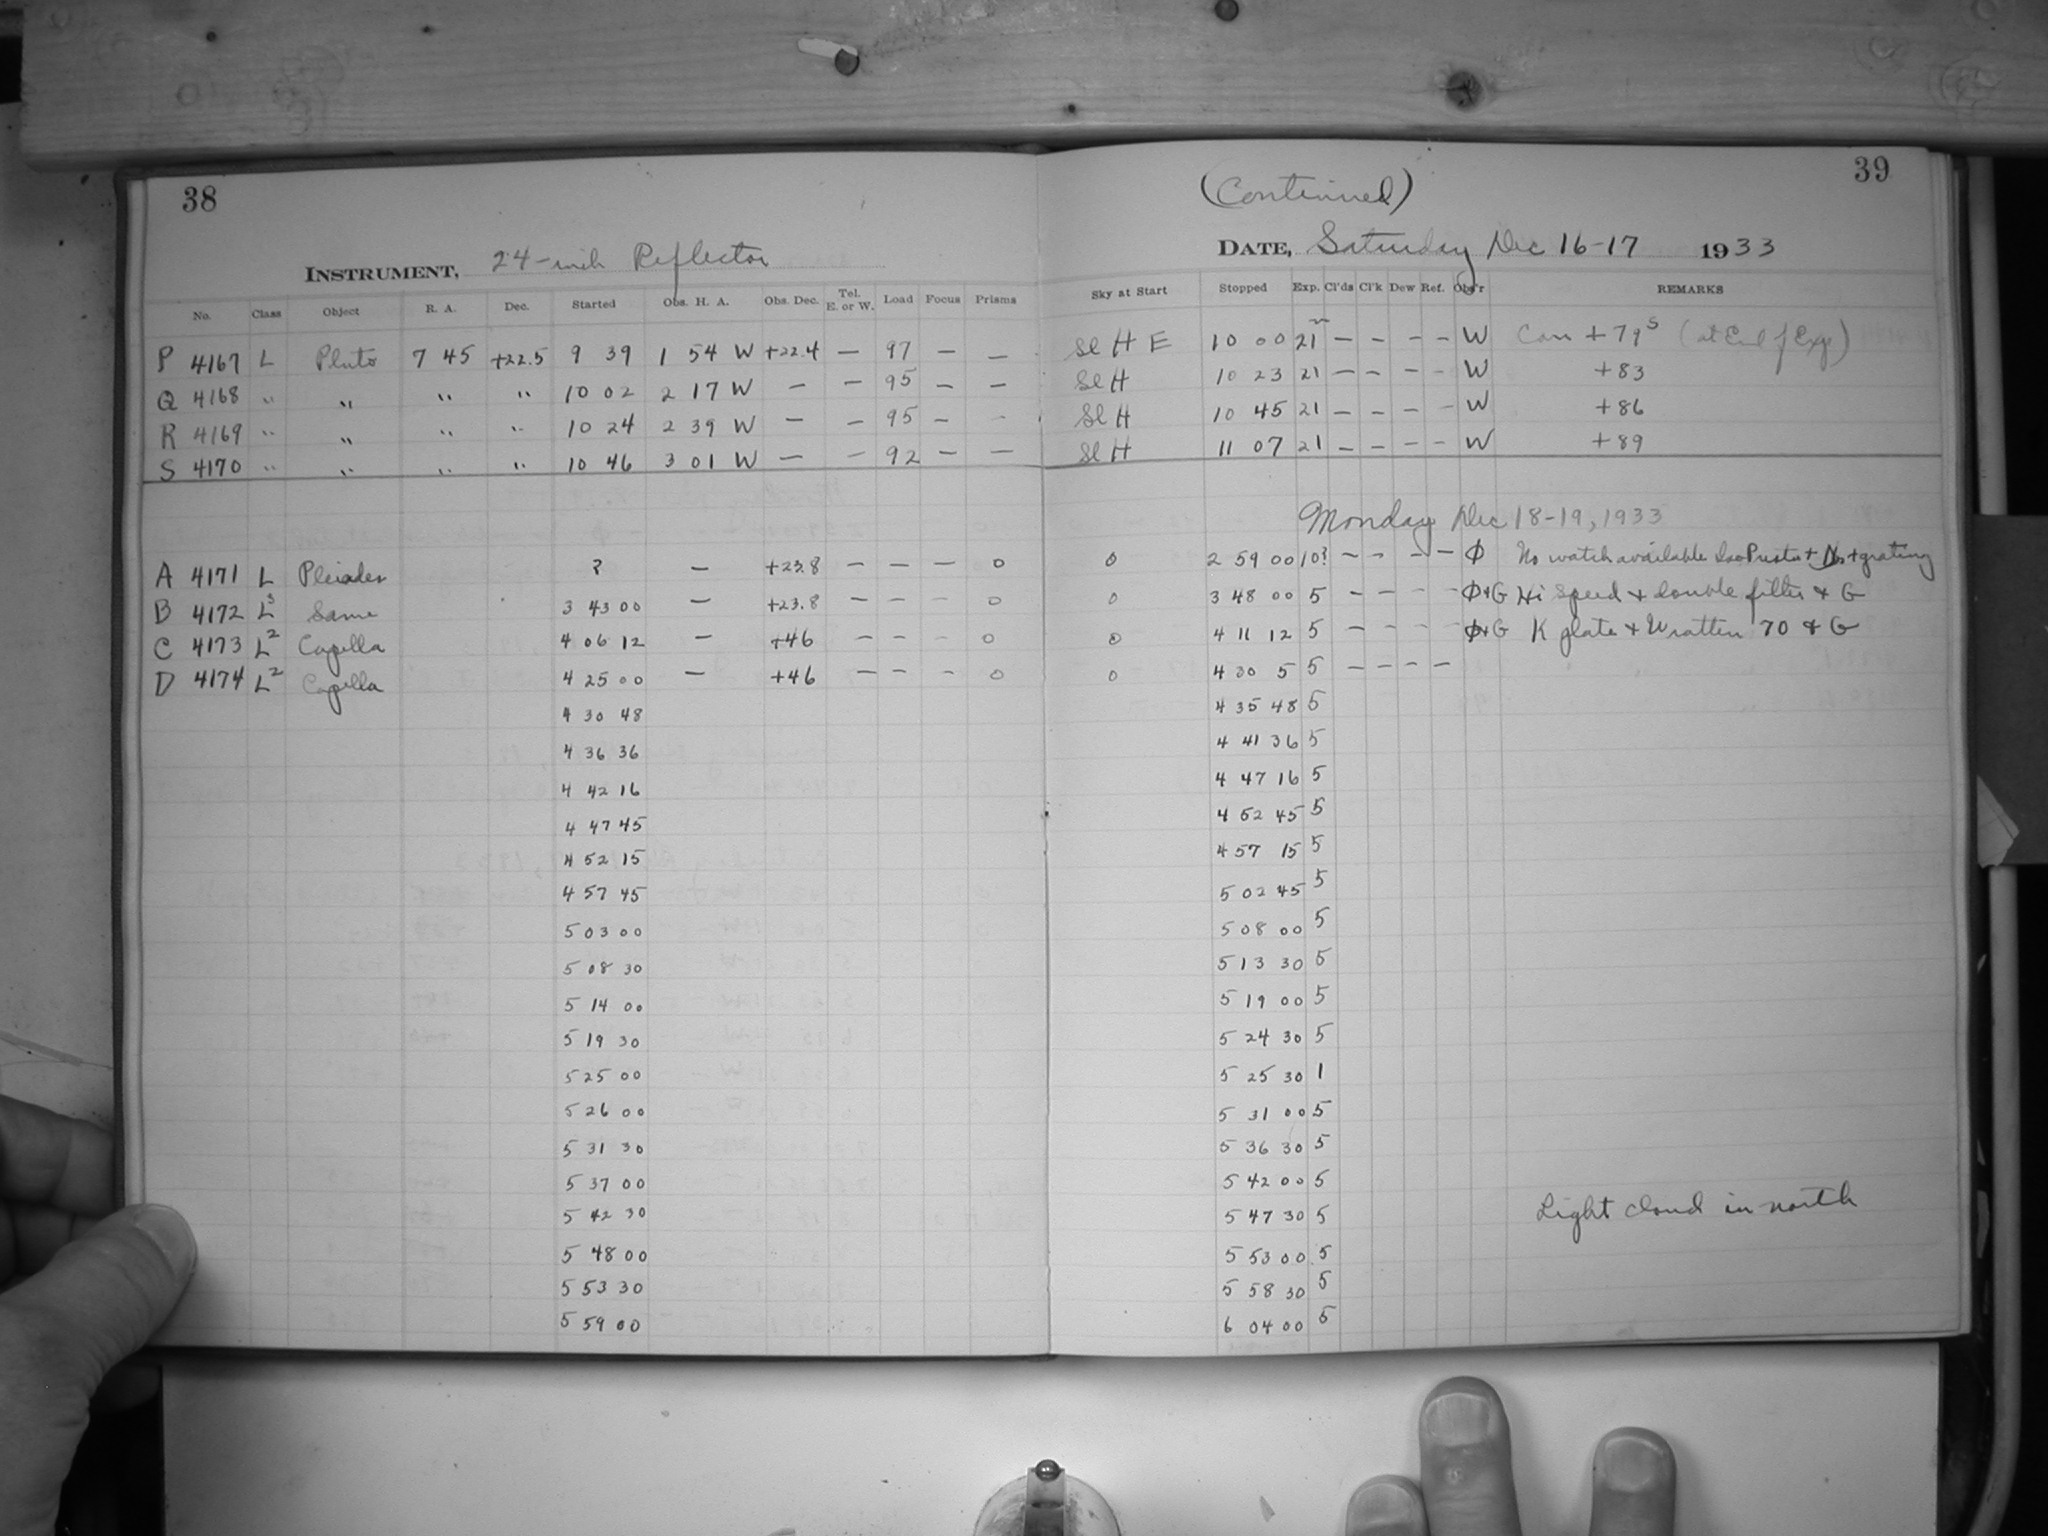 38
INSTRUMENT, 24-inch Reflector
No. Class Object R. A. Dec. Started Obs. H. A. Obs. Dec. Tel. E. or W. Load Focus Prisms
P 4167 L Pluto 7 45 +22.5 9 39 1 54 W +22.4 — 97 — —
Q 4168 " " " " 10 02 2 17 W — — 95 — —
R 4169 " " " " 10 24 2 39 W — — 95 — -
S 4170 " " " " 10 46 3 01 W — — 92 — —
A 4171 L Pleiades ? — +23.8 — — — 0
B 4172 L3 Same 3 43 00 — +23.8 — — — 0
C 4173 L2 Capella 4 06 12 — +46 — — — 0
D 4174 L2 Capella 4 25 00 — +46 — — - 0
4 30 48
4 36 36
4 42 16
4 47 45
4 52 15
4 57 45
5 03 00
5 08 30
5 14 00
5 19 30
5 25 00
5 26 00
5 31 30
5 37 00
5 42 30
5 48 00
5 53 30
5 59 00
39
(Continued)
DATE, Saturday Dec 16-17 1933
Sky at Start Stopped Exp. Cl'ds Cl'k Dew Ref. Obs'r REMARKS
Sl H E 10 00 21m — — — — W Corr +79s (at End of Exp)
Sl H 10 23 21 — — — - W +83
Sl H 10 45 21 — — — - W +86
Sl H 11 07 21 — — — — W +89
Monday Dec 18-19, 1933
0 2 59 00 10? — — — — φ No watch available Iso Presto + + grating
0 3 48 00 5 — — - - φ+G Hi Speed + double filter & G
0 4 11 12 5 — - - - φ+G K plate + Wratten 70 & G
0 4 30 5 5 — — — —
4 35 48 5
4 41 36 5
4 47 16 5
4 52 45 5
4 57 15 5
5 02 45 5
5 08 00 5
5 13 30 5
5 19 00 5
5 24 30 5
5 25 30 1
5 31 00 5
5 36 30 5
5 42 00 5
5 47 30 5 Light cloud in north
5 53 00 5
5 58 30 5
6 04 00 5